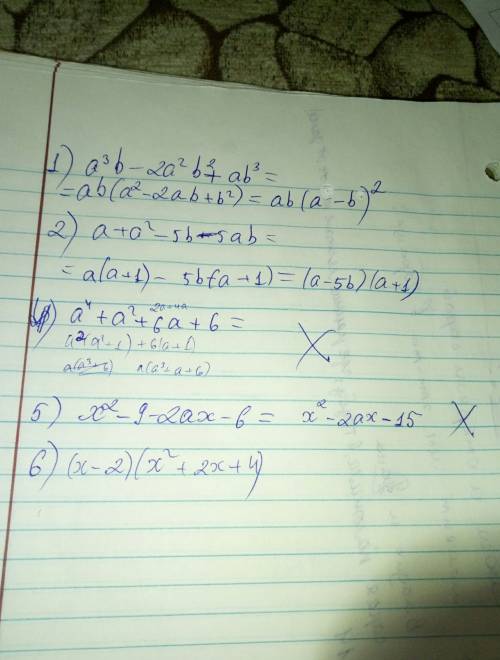 1) a³b - 2a²b² + ab³ =
= ab(a² - 2ab + b²) = ab(a - b)²
2) a + a² - 5b - 5ab =
= a(a+1) - 5b(a+1) = (a-5b)(a+1)
2a+4a
4) a⁴ + a² + 6a + 6 =
a²(a²+1) + 6(a+1)
a(a³+6) a(a³+a+6)
X
5) x² - 9 - 2ax - 6 = x² - 2ax - 15 X
6) (x-2)(x² + 2x + 4)